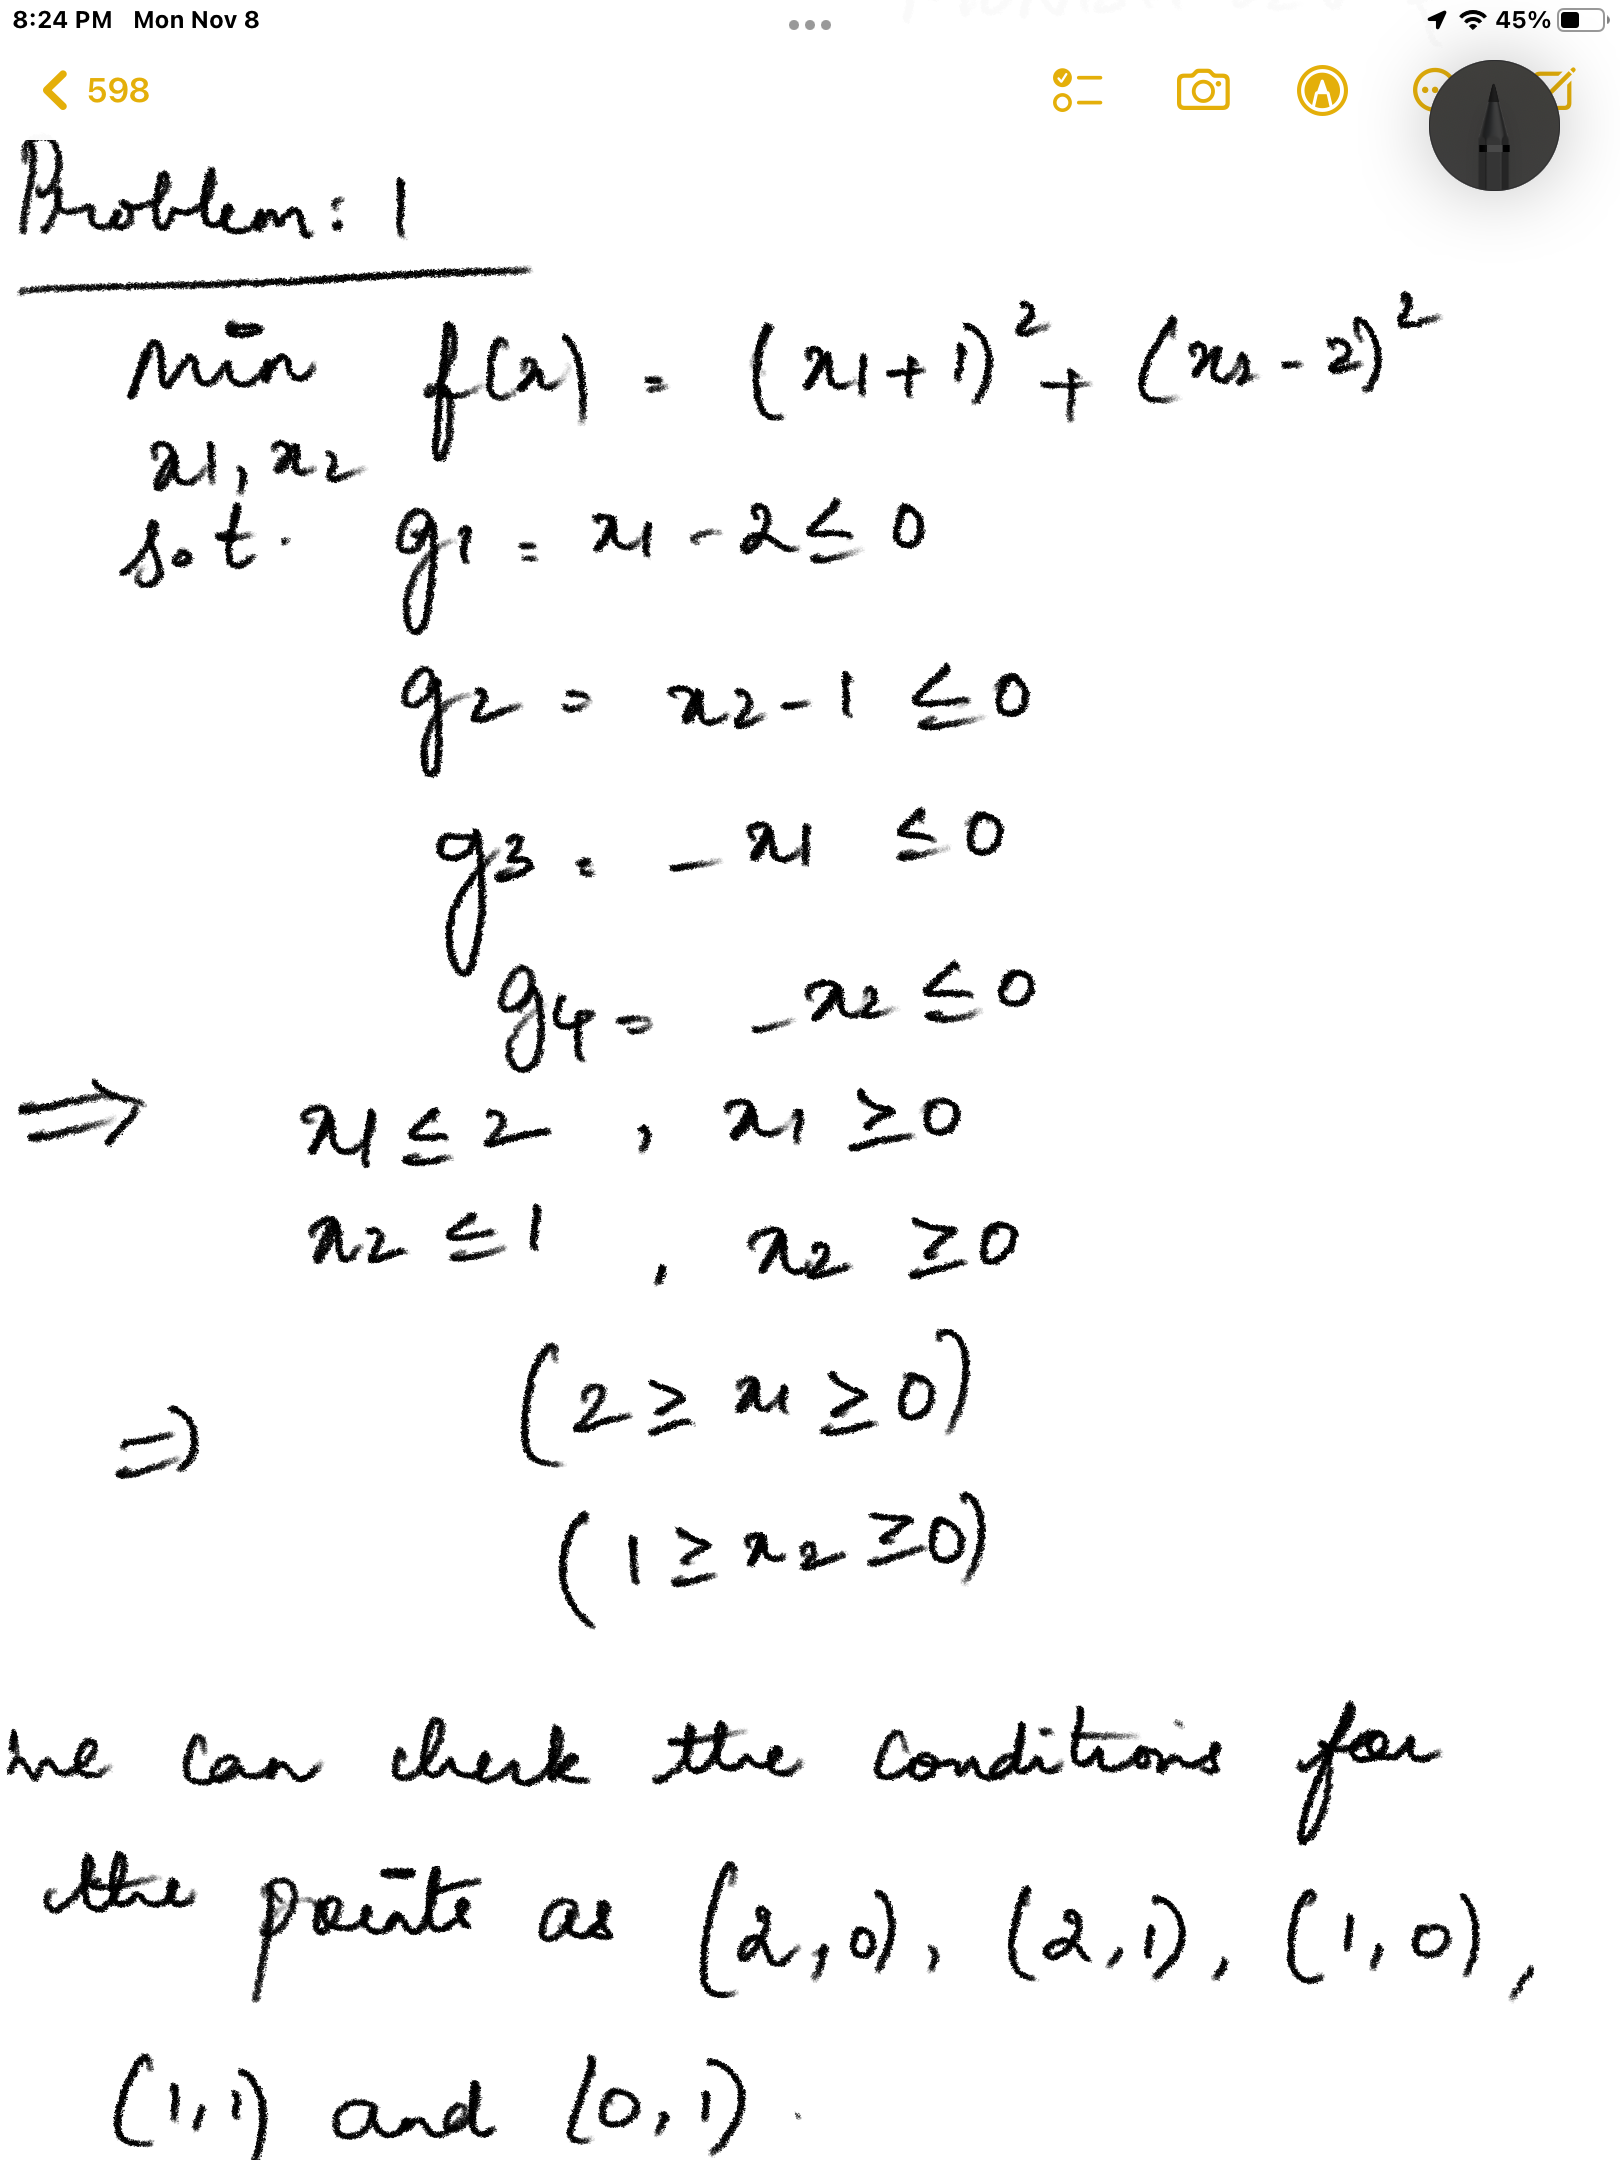 8:24 PM Mon Nov 8 45%
598
Problem: 1
min f(x) = (x1+1)² + (x2-2)²
x1, x2
s.t. g1 = x1 - 2 ≤ 0
g2 = x2 - 1 ≤ 0
g3 = -x1 ≤ 0
g4 = -x2 ≤ 0
⇒ x1 ≤ 2 , x1 ≥ 0
x2 ≤ 1 , x2 ≥ 0
⇒ (2 ≥ x1 ≥ 0)
(1 ≥ x2 ≥ 0)
we can check the conditions for
the points as (2,0), (2,1), (1,0),
(1,1) and (0,1).